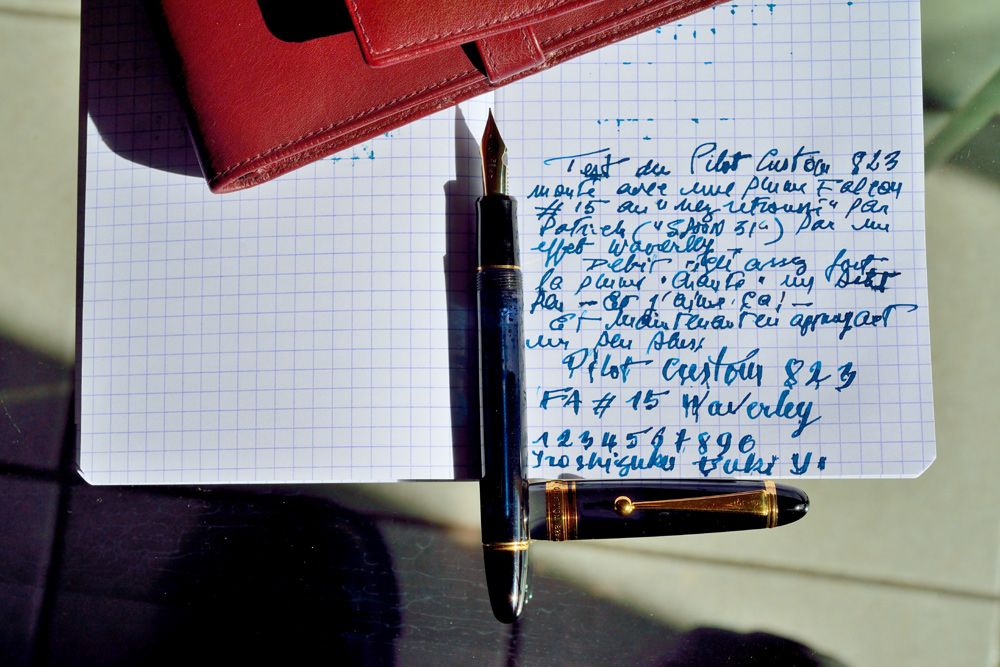 Test du Pilot Custom 823
monté avec une plume Falcon
# 15 au "nez retroussé" par
Patrick par un
effet Waverley
Débit réglé assez fort
la plume "chante" un petit
peu - et j'aime ça! -
Et maintenant en appuyant
un peu plus:
Pilot Custom 823
FA # 15 Waverley
1234567890
Iroshizuku Tsuki Yo